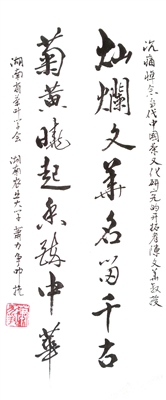 沉痛悼念当代中国茶文化研究的开拓者陈文华教授
灿烂文华名留千古
菊黄晓起香馥中华
湖南省茶叶学会 湖南农业大学 萧力争 挽